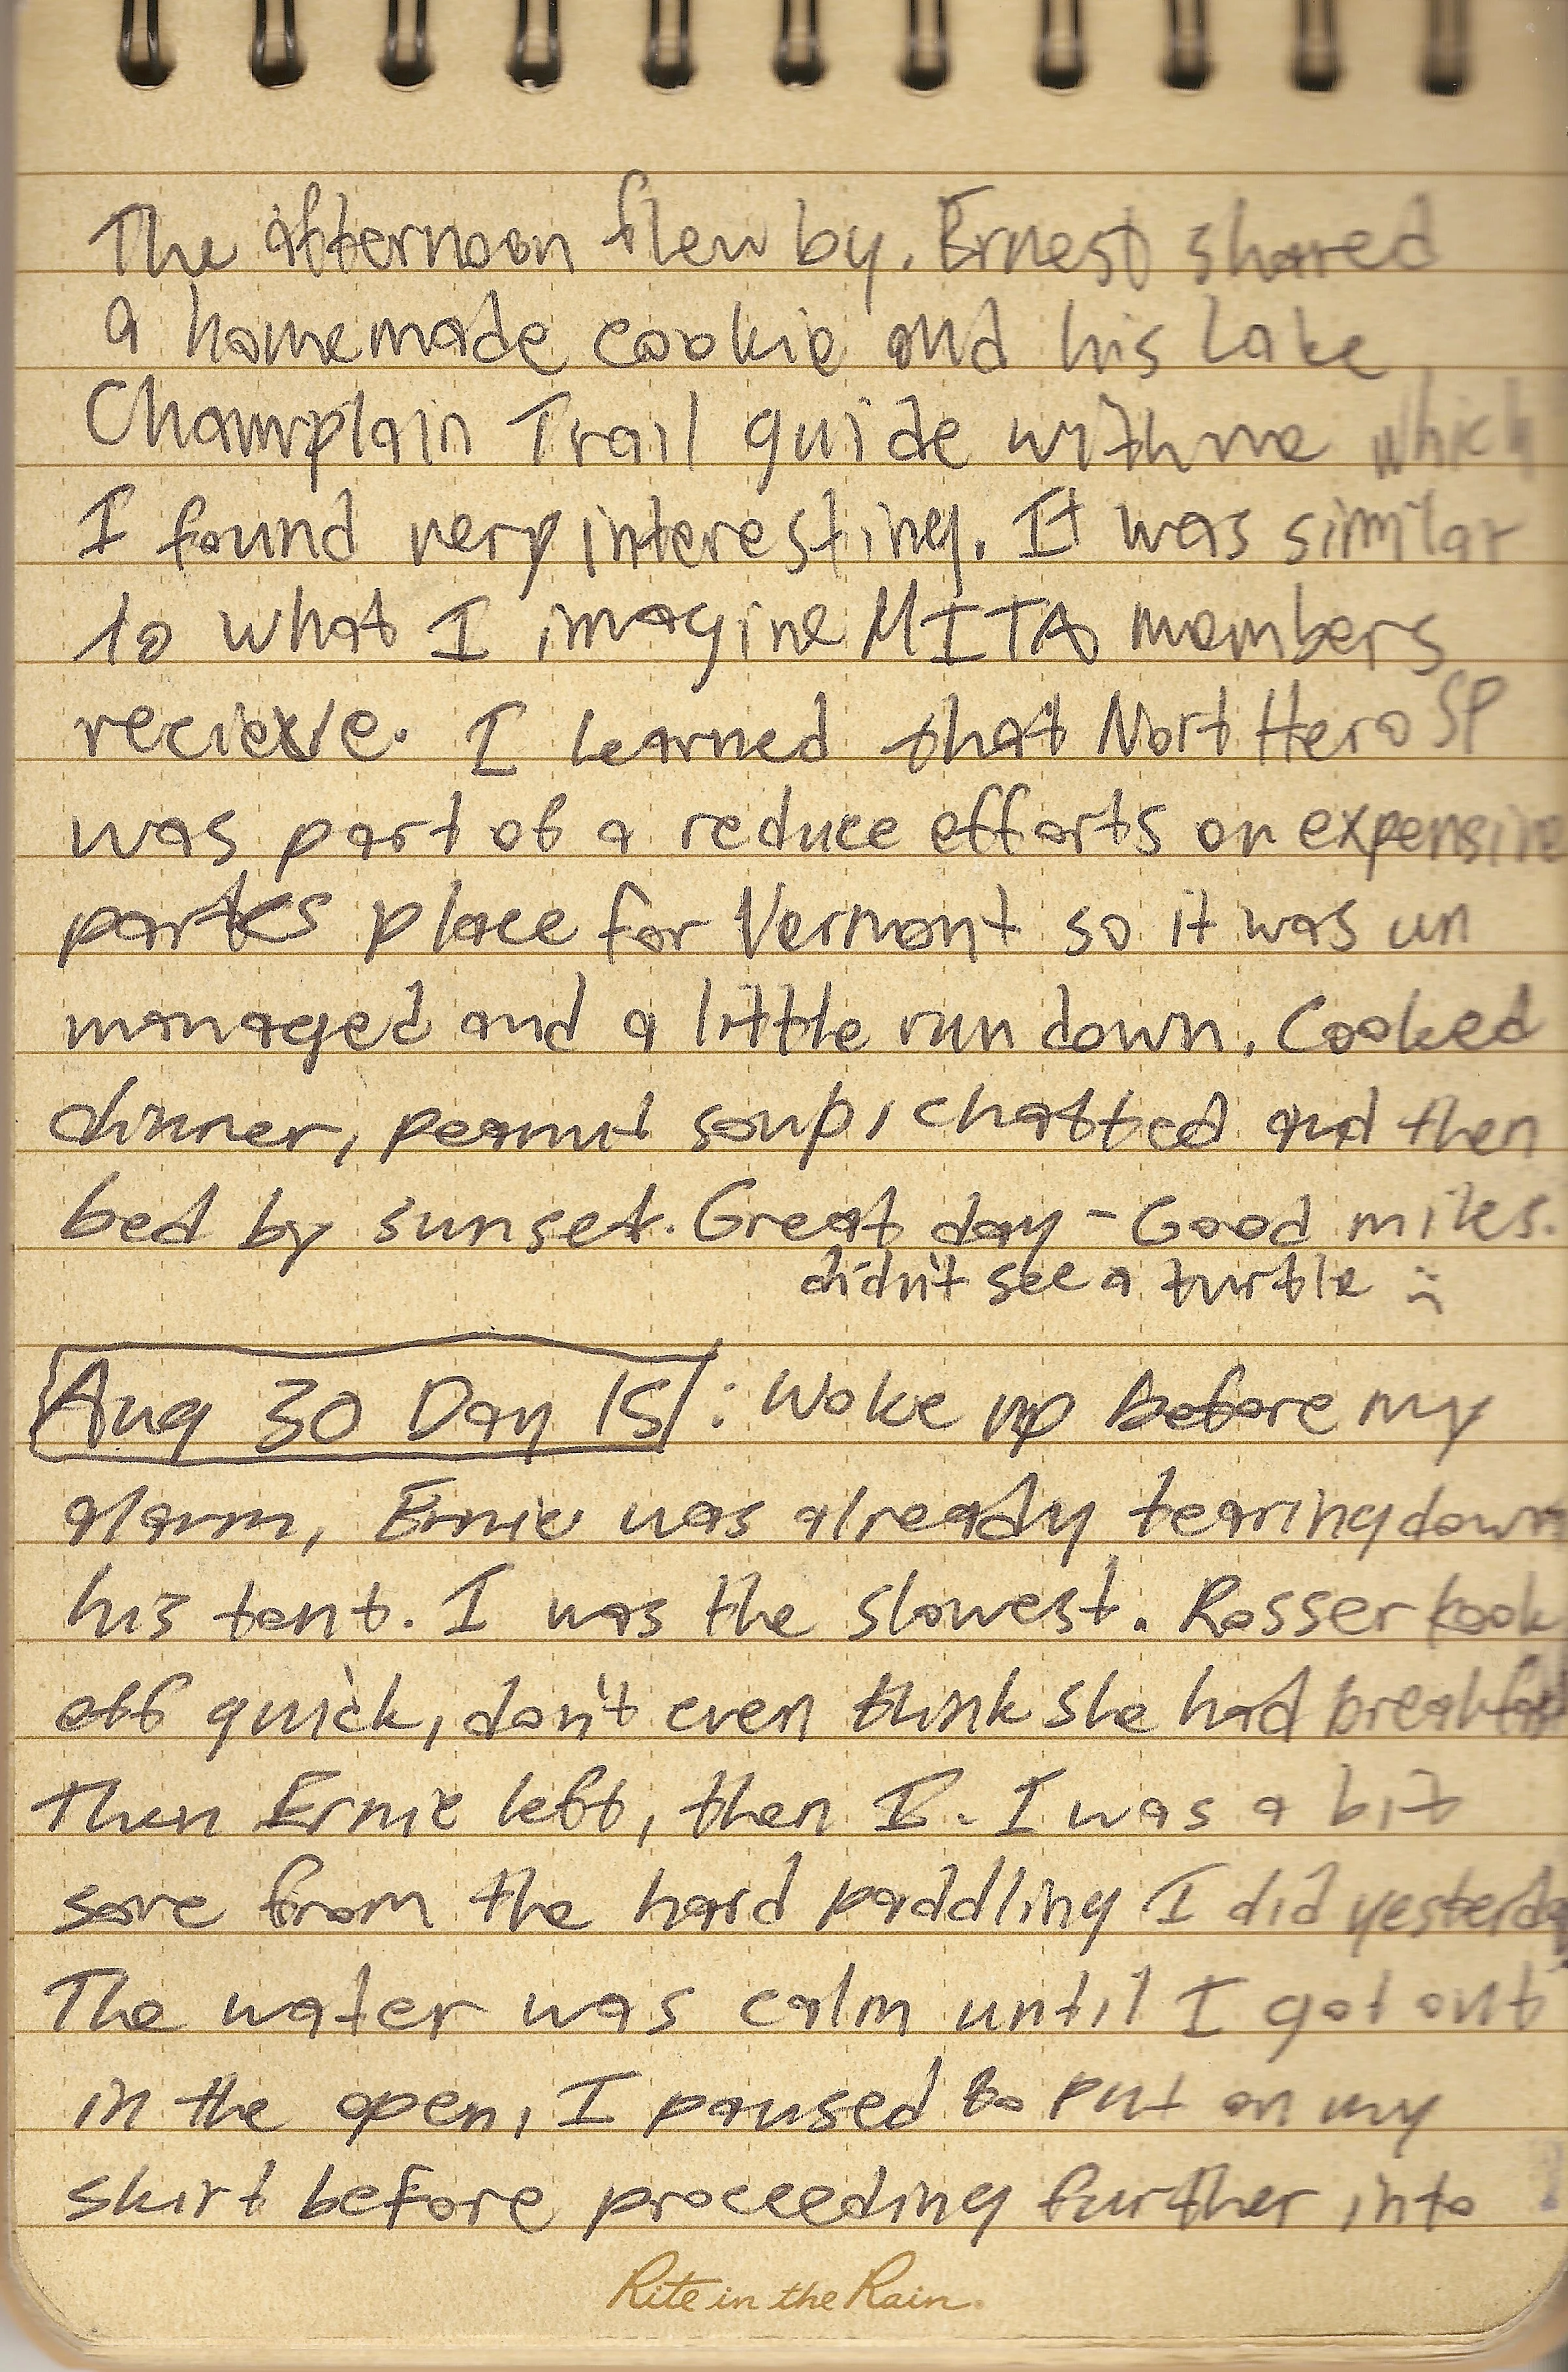 The afternoon flew by. Ernest shared
a homemade cookie and his Lake
Champlain Trail guide with me which
I found very interesting. It was similar
to what I imagine MITA members
recieve. I learned that Nort Hero SP
was part of a reduce efforts on expensive
parks place for Vermont so it was un
managed and a little run down. Cooked
dinner, peanut soup, chatted and then
bed by sunset. Great day - Good miles.
didn't see a turtle :(
Aug 30 Day 15: Woke up before my
alarm, Ernie was already tearing down
his tent. I was the slowest. Rosser took
off quick, don't even think she had breakfast
Then Ernie left, then I. I was a bit
sore from the hard paddling I did yesterday
The water was calm until I got out
in the open, I paused to put on my
skirt before proceeding further into
Rite in the Rain